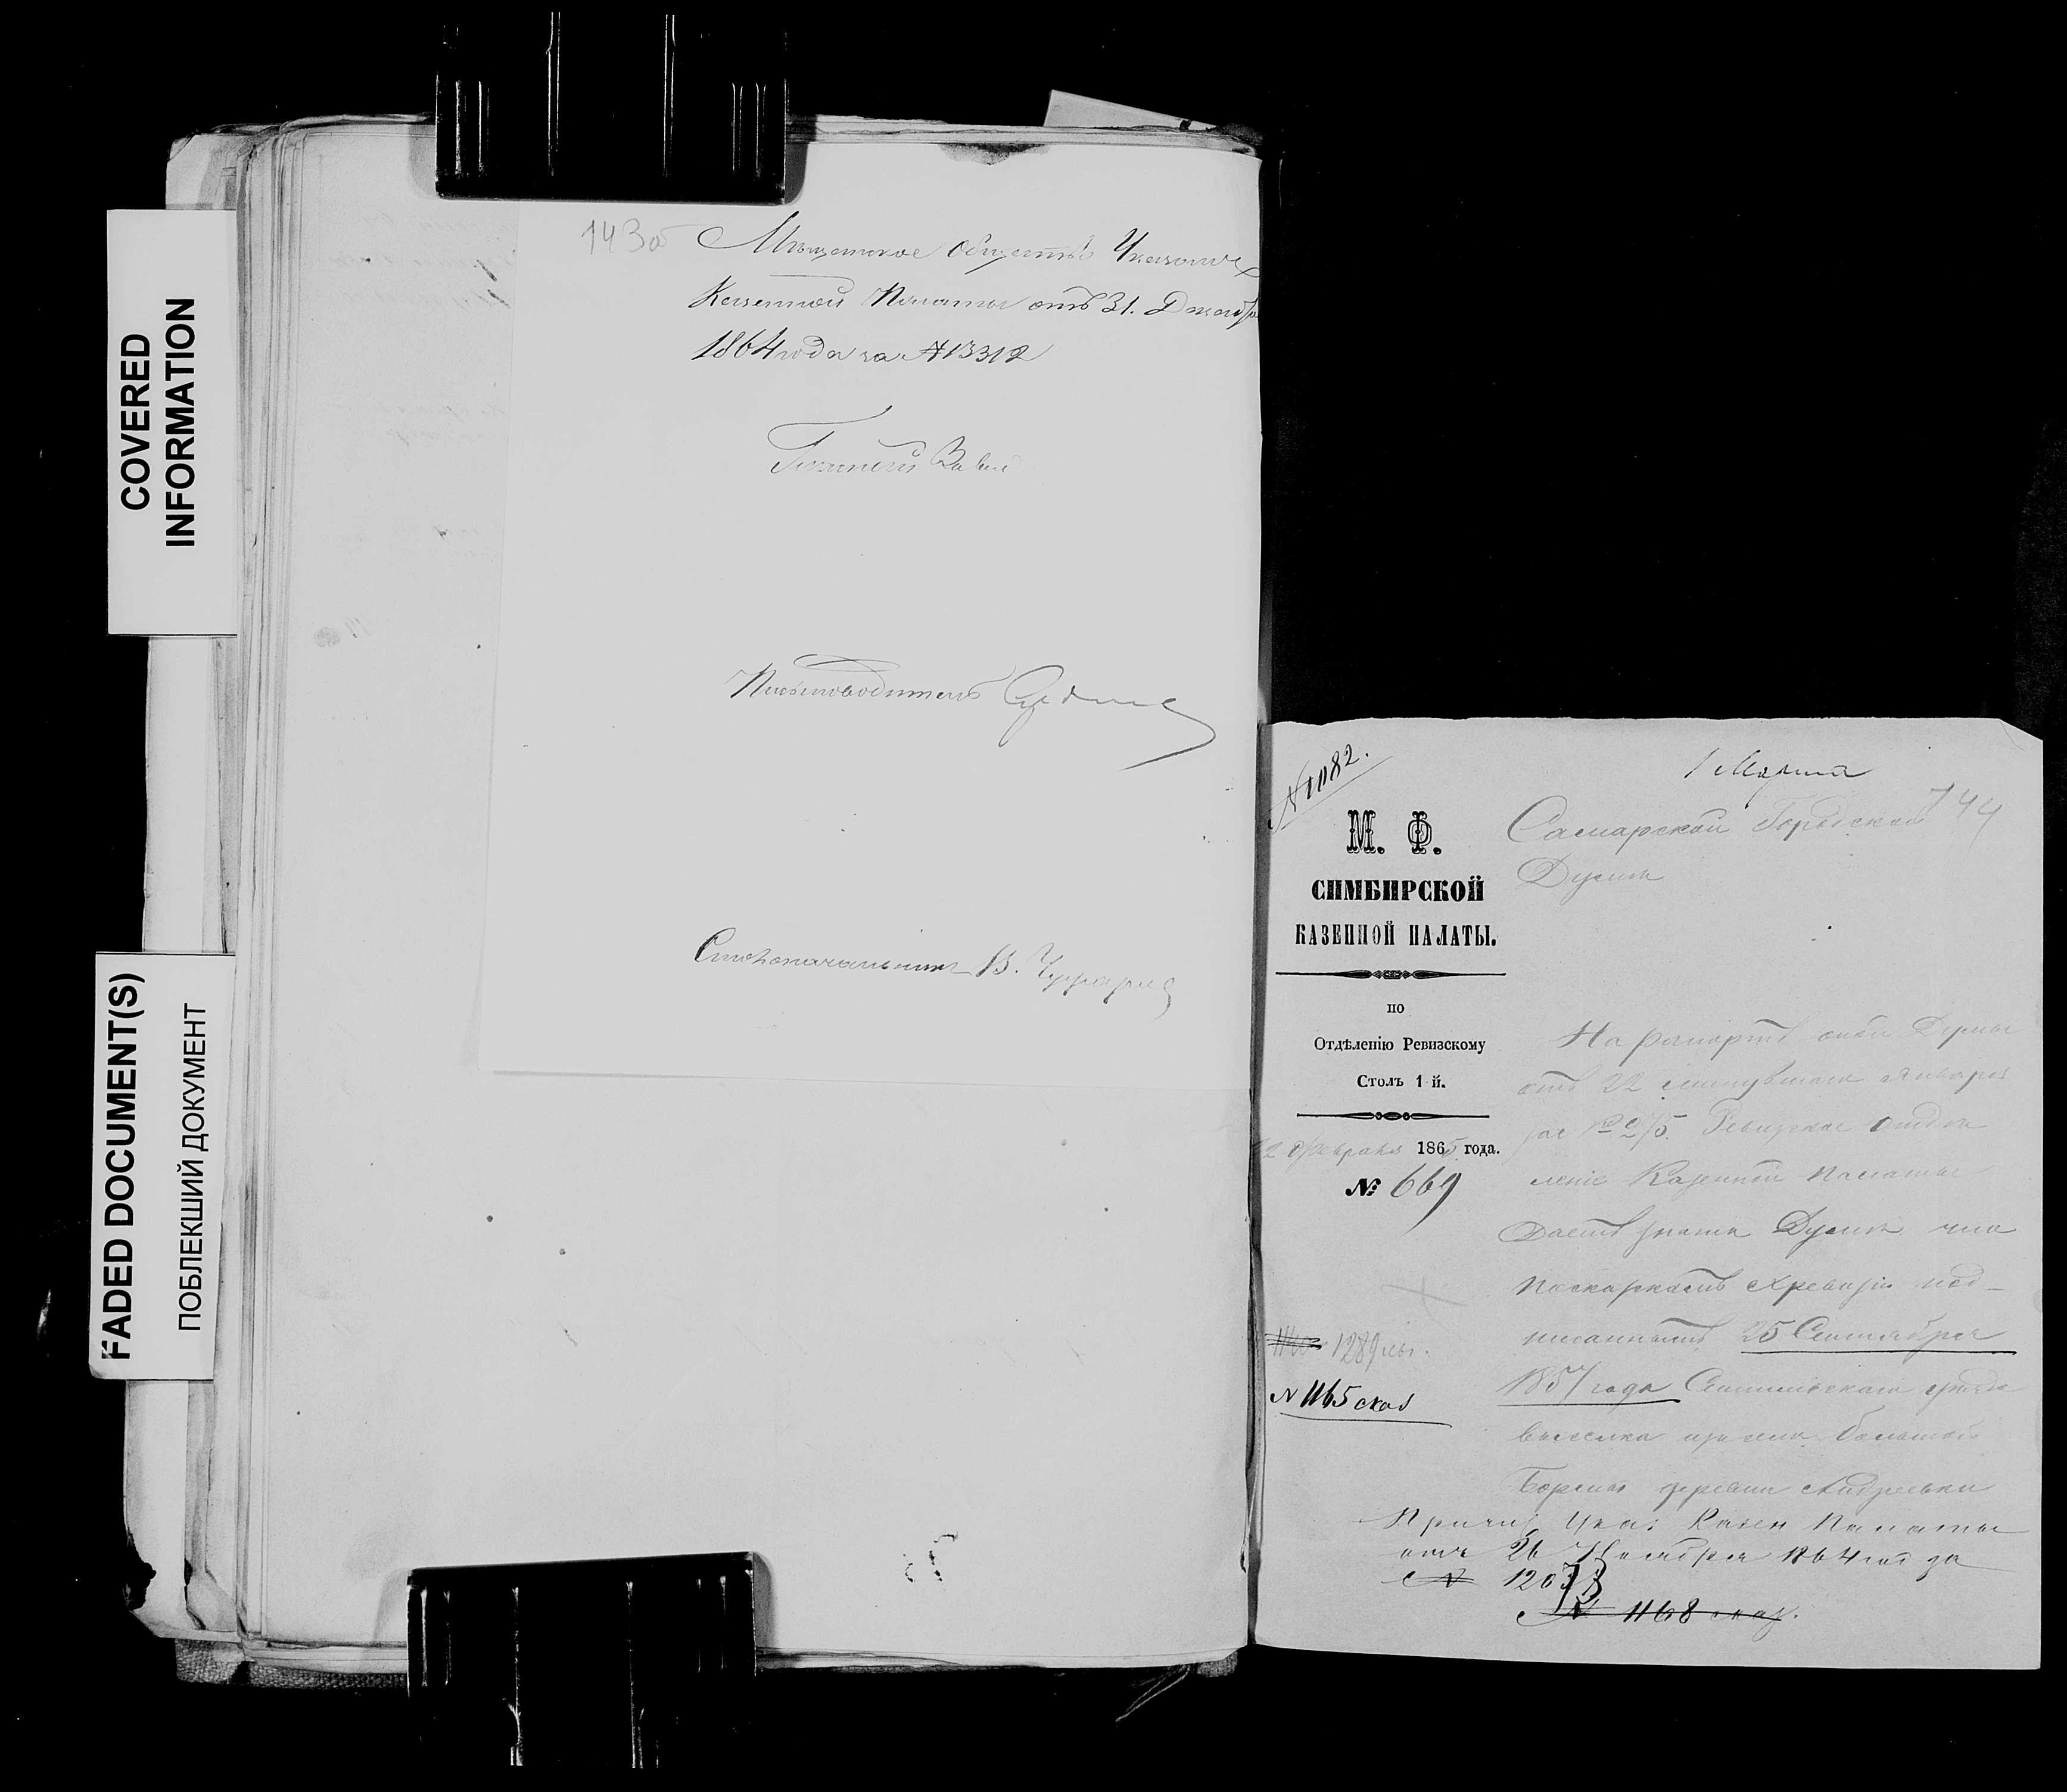 COVERED
INFORMATION
FADED DOCUMENT(S)
ПОБЛЕКШИЙ ДОКУМЕНТ
143об
Мѣщанское общество Указомъ
Казенной Палаты отъ 31. Декабр
1864 года за № 13312
Письмоводитель
Столоначальникъ В.
№ 1182.
1 Марта
144
М. Ф.
СИМБИРСКОЙ
КАЗЕННОЙ ПАЛАТЫ.
по
Отдѣленію Ревизскому
Столъ 1 й.
Февраля 1865 года.
№ 669
Самарской Городской
Думѣ
На рапортъ оной Думы
отъ 22 минувшаго Января
за № 275. Ревизское отдѣ
леніе Казенной Палаты
даетъ знать Думѣ что
по сказкамъ X ревизіи под-
писаннымъ 25 Сентября
1857 года
выселка изъ села Большой
Борлы деревни Андреевки
1289
№ 1165 сказ
Причис. Указ: Казен Палаты
отъ 26 Ноября 1864 год за
№ 1168 сказ.